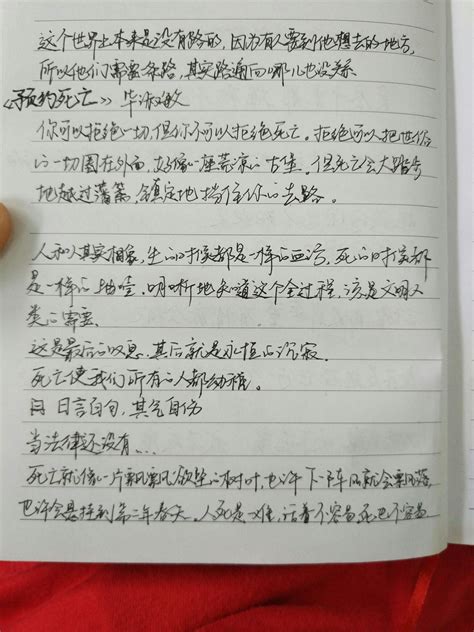 这个世界上本来是没有路的,因为有人要到他想去的地方,
所以他们需要条路,其实路通向哪儿也没关系
《预约死亡》 毕淑敏
你可以拒绝一切,但你不可以拒绝死亡。拒绝可以把世俗
的一切圈在外面,好像一座荒凉的古堡。但死亡会大踏步
地越过藩篱,镇定地挡住你的去路。
人和人其实相象,生的时候都是一样的血污,死的时候都
是一样的抽噎,明晰地知道这个全过程,该是文明人
类的需要
这是最后的叹息,其后就是永恒的沉寂。
死亡使我们所有的人都幼稚。
日言自句,其气自伤
当法律还没有...
死亡就像一片飘飘欲坠的树叶,也许下一阵风就会飘落
也许会悬挂到第二年春天。人死是难,活着不容易死也不容易